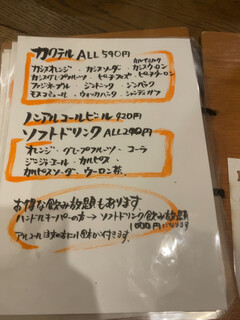 カクテル ALL 590円
カシスオレンジ・カシスソーダ・カシスウーロン
カシスグレープフルーツ・ピーチフィズ・ピーチウーロン
ファジーネーブル・ジントニック・ジンバック
モスコミュール・ウォッカバック・シャンディガフ
ノンアルコールビール 420円
ソフトドリンク ALL 290円
オレンジ・グレープフルーツ・コーラ
ジンジャエール・カルピス
カルピスソーダ・ウーロン茶
お得な飲み放題もあります
ハンドルキーパーの方→ソフトドリンク飲み放題
1000円になります